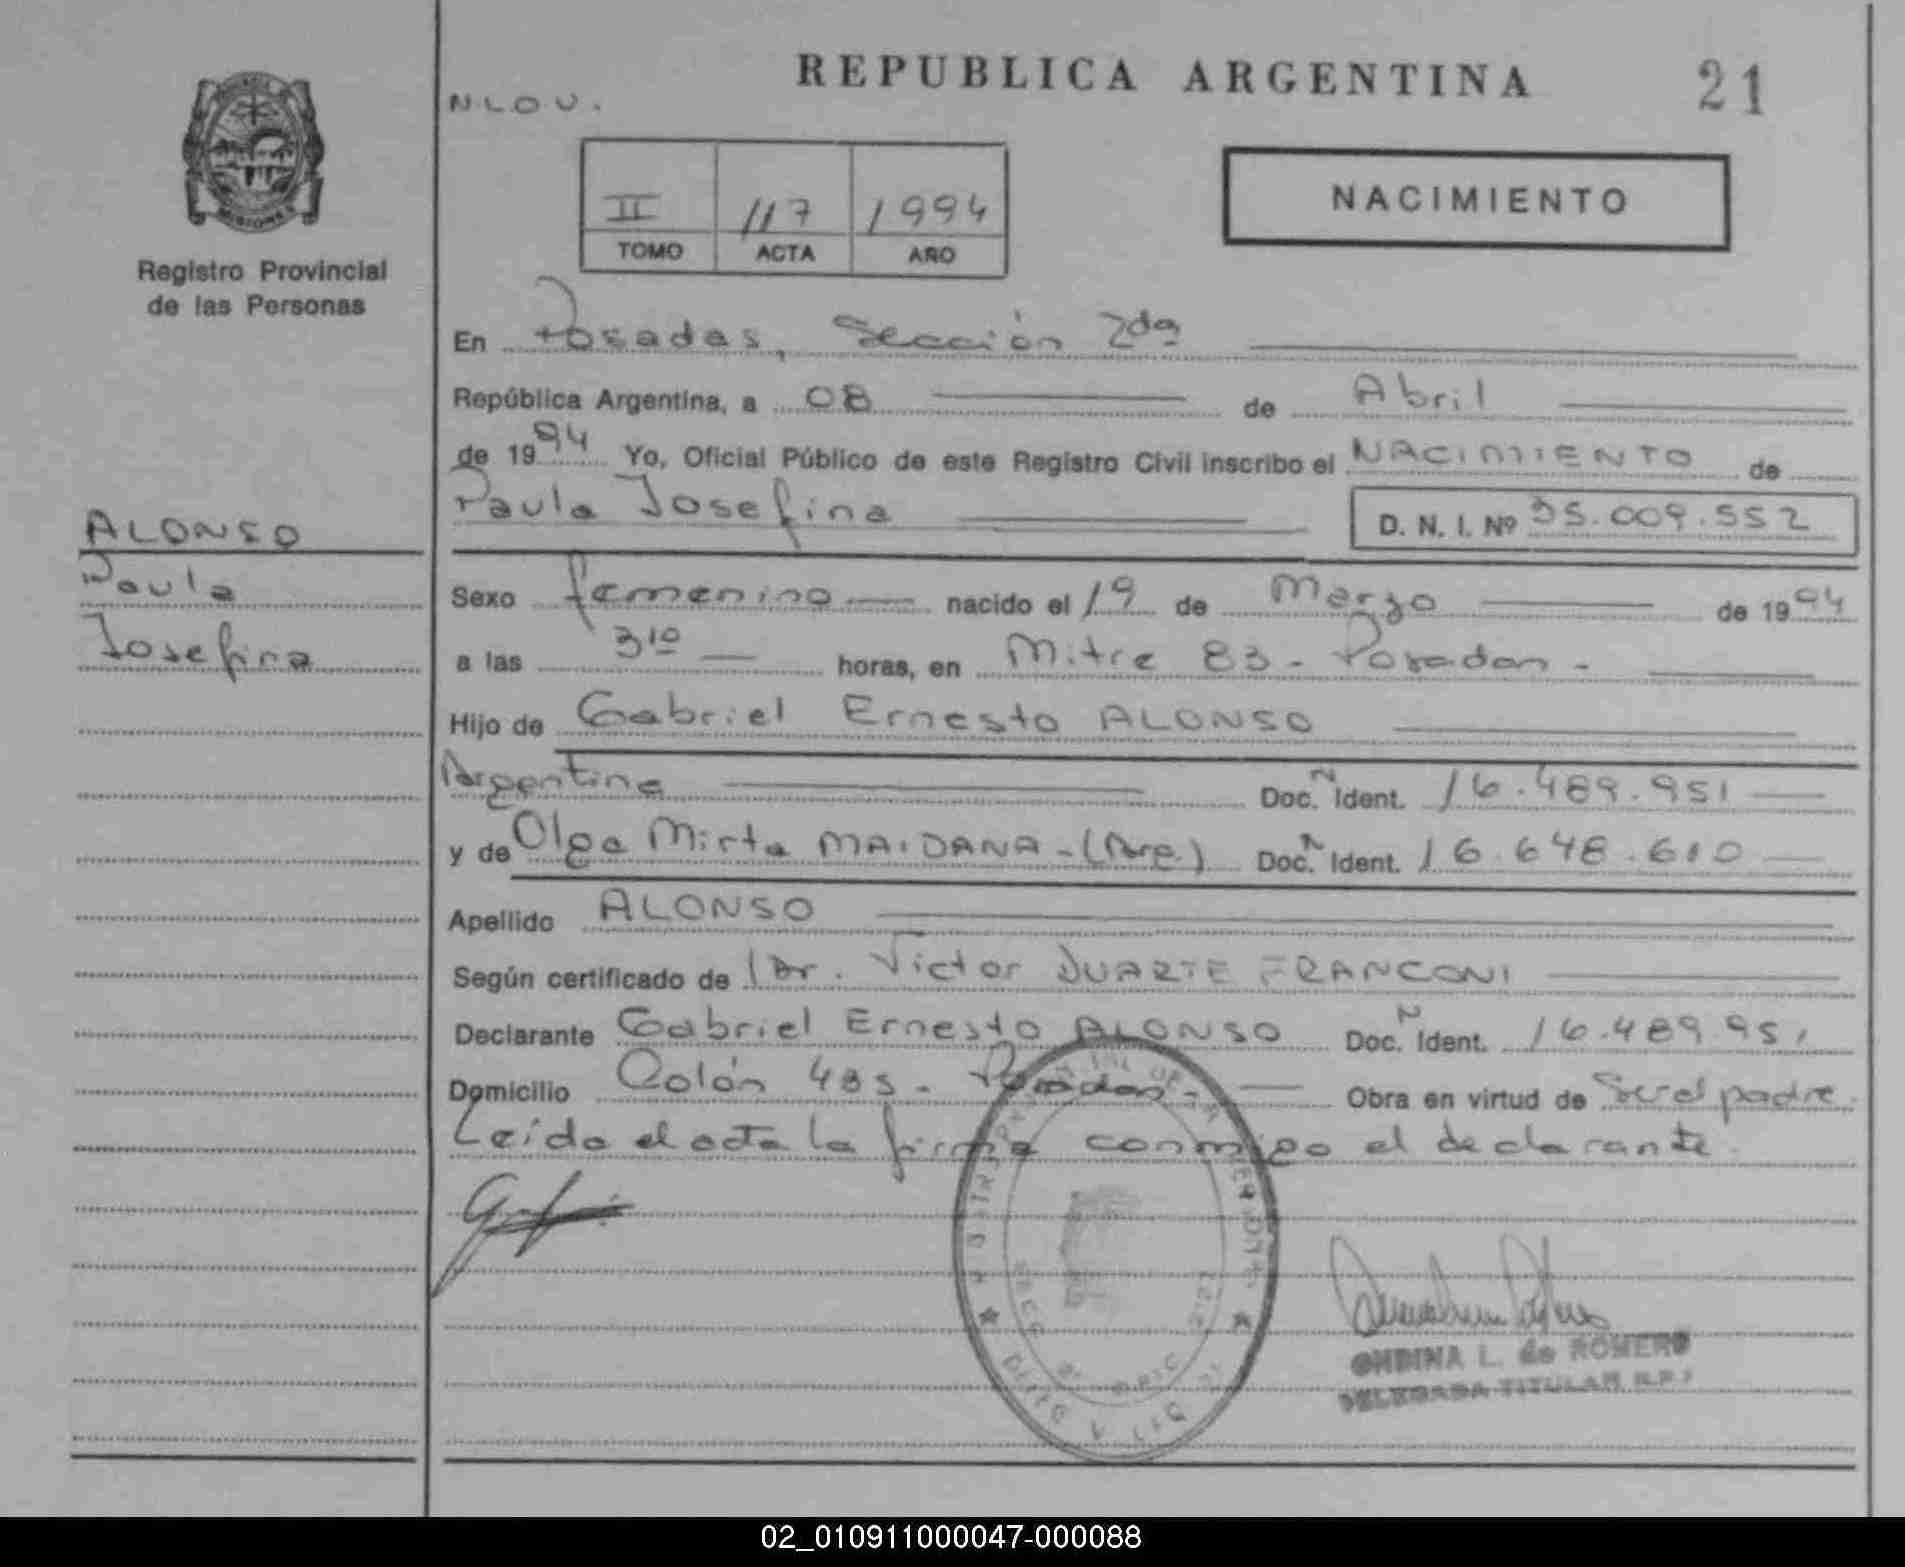 REPUBLICA ARGENTINA
21
N.L.O.U.
II 117 1994
TOMO ACTA AÑO
NACIMIENTO
MISIONES
Registro Provincial
de las Personas
En Posadas, Sección 2da
República Argentina, a 08 de Abril
de 1994 Yo, Oficial Público de este Registro Civil inscribo el NACIMIENTO de
Paula Josefina D. N. I. Nº 35.009.552
ALONSO
Paula
Josefina
Sexo femenino nacido el 19 de Marzo de 1994
a las 310 horas, en Mitre 83 - Posadas -
Hijo de Gabriel Ernesto ALONSO
Argentina Doc. N Ident. 16.489.951
y de Olga Mirta MAIDANA - (Arg.) Doc. N Ident. 16.648.610
Apellido ALONSO
Según certificado de Dr. Victor DUARTE FRANCONI
Declarante Gabriel Ernesto ALONSO Doc. N Ident. 16.489.951
Domicilio Colón 485 - Posadas - Obra en virtud de Ser el padre.
Leída el acta la firma conmigo el declarante.
ONDINA L. de ROMERO
DELEGADA TITULAR R.P.
02_010911000047-000088